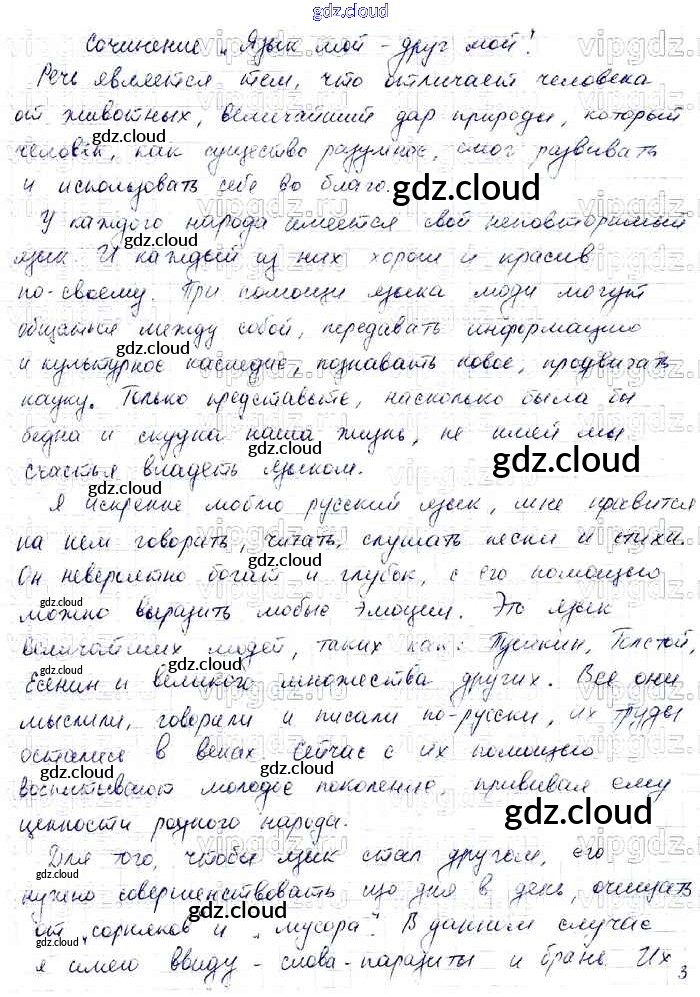 gdz.cloud
Сочинение „Язык мой - друг мой!
Речь является тем, что отличает человека
от животных, величайший дар природы, который
человек, как существо разумное, смог развивать
и использовать себе во благо.
У каждого народа имеется свой неповторимый
язык. И каждый из них хорош и красив
по-своему. При помощи языка люди могут
общаться между собой, передавать информацию
и культурное наследие, познавать новое, продвигать
науку. Только представьте, насколько была бы
бедна и скудна наша жизнь, не имей мы
счастья владеть языком.
Я искренне люблю русский язык, мне нравится
на нем говорить, читать, слушать песни и стихи.
Он невероятно богат и глубок, с его помощью
можно выразить любые эмоции. Это язык
величайших людей, таких как: Пушкин, Толстой,
Есенин и великого множества других. Все они
мыслили, говорили и писали по-русски, их труды
остались в веках. Сейчас с их помощью
воспитывают молодое поколение, прививая ему
ценности родного народа.
Для того, чтобы язык стал другом, его
нужно совершенствовать изо дня в день, очищать
от „сорняков и „мусора". В данном случае
я имею ввиду - слова-паразиты и брань. Их
3